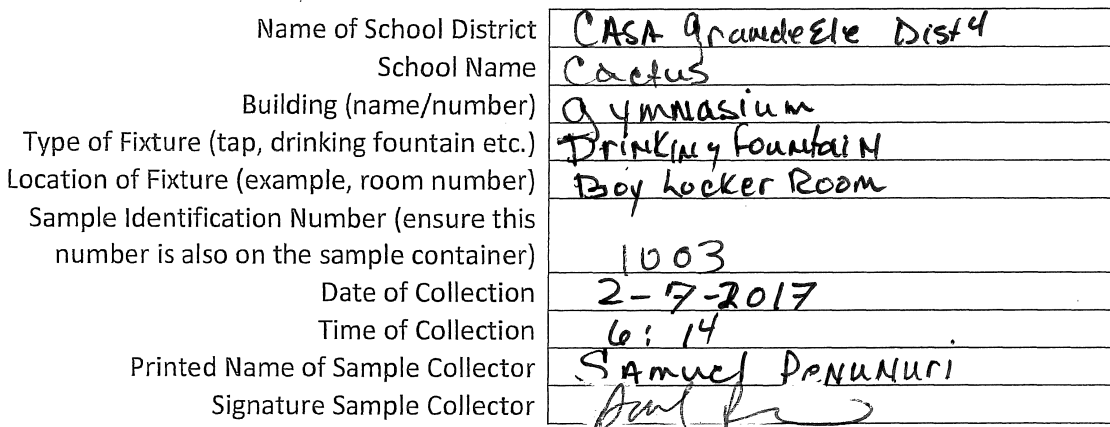 Name of School District CASA Grande Ele Dist 4
School Name Cactus
Building (name/number) Gymnasium
Type of Fixture (tap, drinking fountain etc.) Drinking Fountain
Location of Fixture (example, room number) Boy Locker Room
Sample Identification Number (ensure this
number is also on the sample container) 1003
Date of Collection 2-7-2017
Time of Collection 6:14
Printed Name of Sample Collector Samuel Penunuri
Signature Sample Collector